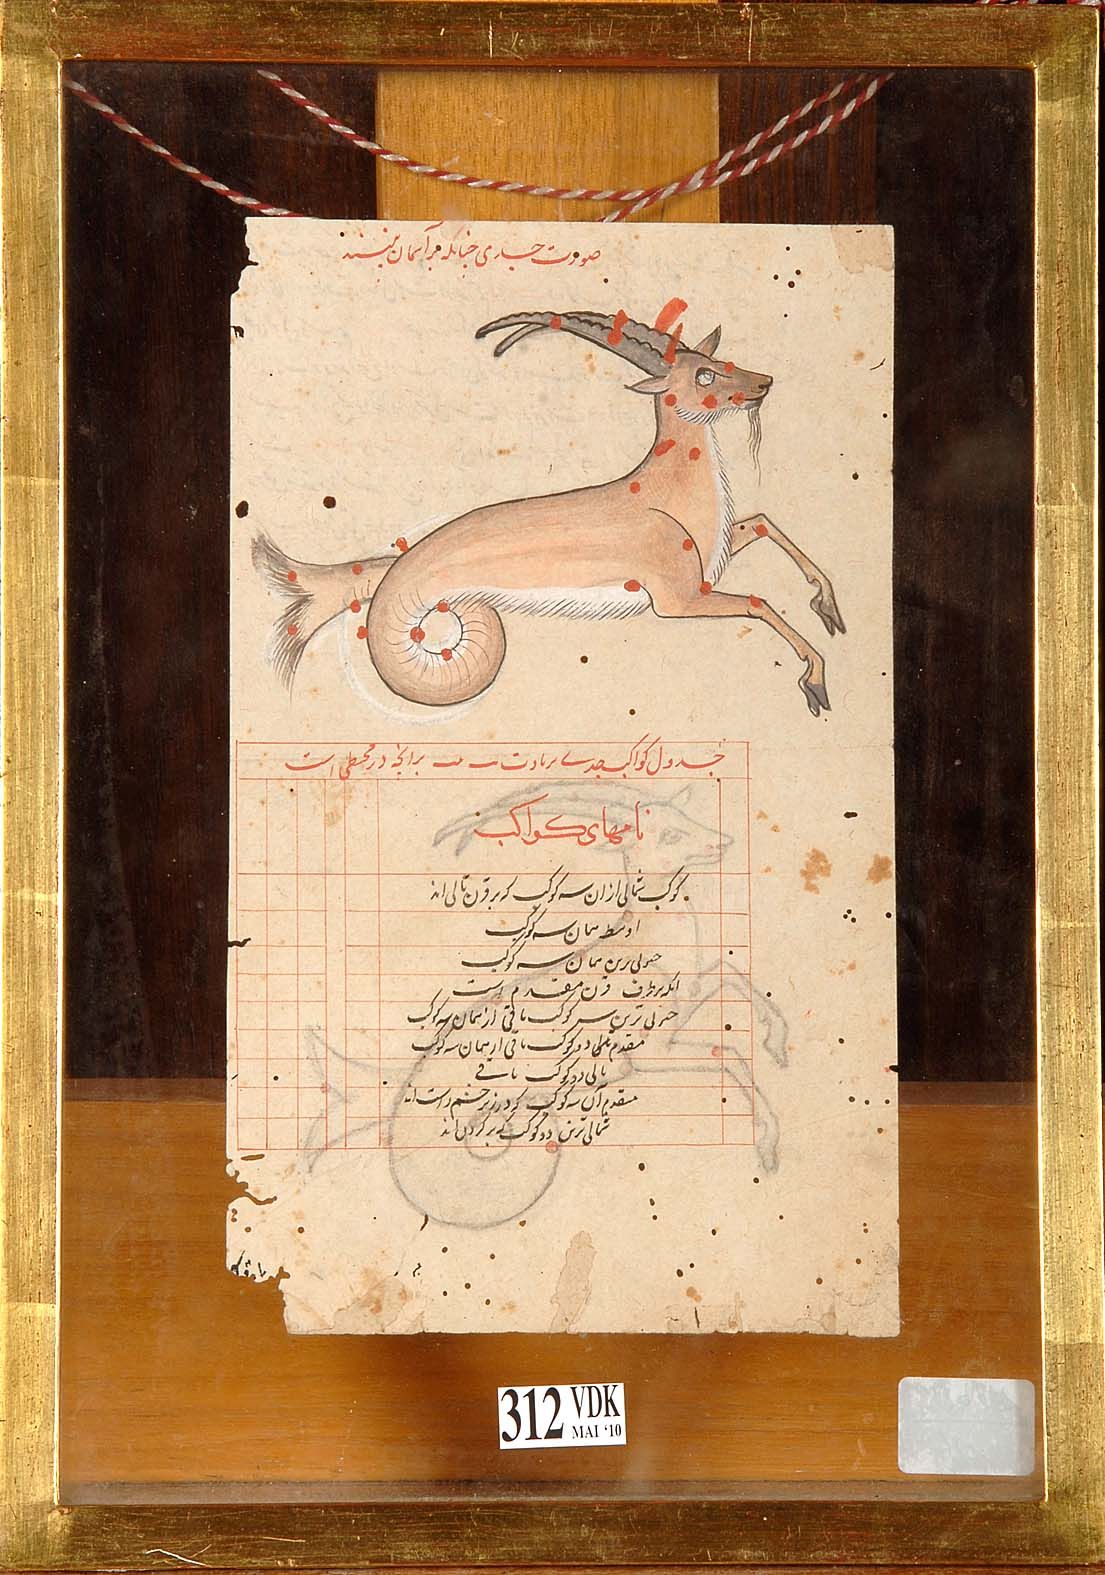 صورت جدی چنانکه بر آسمان بینند
جدول کواکب جدی بر آنچه در مجسطی است
نامهای کواکب
کوکب شمالی از ان سه کوکب که بر قرن تالی اند
اوسط همان سه کوکب
جنوبی ترین همان سه کوکب
انکه بر طرف قرن مقدم است
جنوبی ترین سه کوکب باقی از همان سه کوکب
مقدم دو کوکب باقی از همان سه کوکب
تالی دو کوکب باقی
مقدم آن سه کوکب که در زیر چشم راست اند
شمالی ترین دو کوکب که بر گردن اند
312 VDK
MAI '10